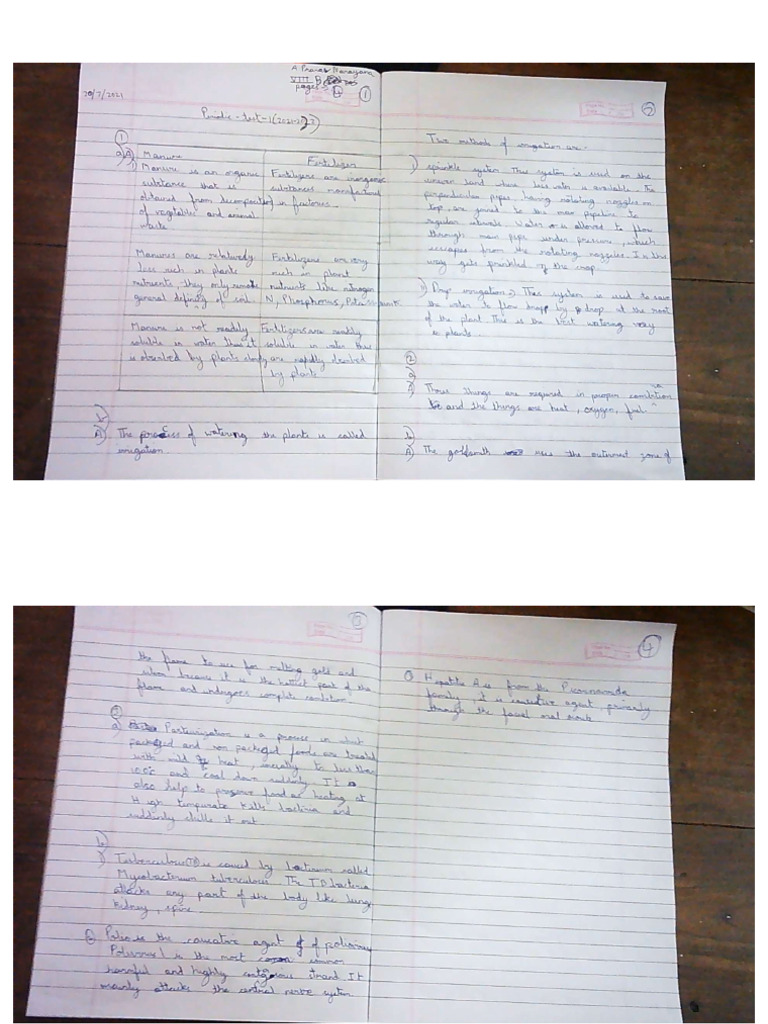 A Pranav Narayana
VIII B
pages - 4
1
20/7/2021
Periodic - test - 1 (2021-2022)
1
a) A) Manure
Fertilizer
1) Manure is an organic
substance that is
obtained from decomposition
of vegetables and animal
waste.
Fertilizers are inorganic
substances manufactured
in factories.
Manures are relatively
less rich in plants
nutrients, they only
general defining of soil.
Fertilizers are very
rich in plant
nutrients like nitrogen
N, Phosphorus, Potassium
Manure is not readily
soluble in water
is absorbed by plants slowly
Fertilizers are readily
soluble in water
are rapidly
by plants
b)
A) The process of watering the plants is called
irrigation.
2
Two methods of irrigation are -
i) sprinkle system This system is used on the
uneven land where less water is available. The
perpendicular pipes, having rotating nozzles on
top, are joined to the main pipeline to
regular intervals. Water is allowed to flow
through main pipe under pressure, which
escapes from the rotating nozzles. In this
way gets sprinkled the crop.
ii) Drip irrigation This system is used to save
the water to flow drop by drop at the root
of the plant. This is the best watering way
to plants.
2
a
A) Three things are required in proper
and the things are heat, oxygen, fuel
b
A) The goldsmith uses the outermost zone of
3
the flame to use for melting gold and
silver because it is the hottest part of the
flame and undergoes complete
3
a) Pasteurization is a process in which
packaged and non packaged foods are treated
with mild heat, usually to less than
100°C and cool down suddenly. It
also help to preserve food as heating at
High kills bacteria and
suddenly chills it out.
b
1) Tuberculosis (TB) is caused by bacterium called
Mycobacterium tuberculosis. The TB bacteria
attacks any part of the body like lung,
kidney, spine.
2 Polio is the causative agent of
is the most common
harmful and highly It
mainly attacks the central nerve system
4
3 Hepatitis A is from the
family. it is causative agent primarily
through the faecal oral route